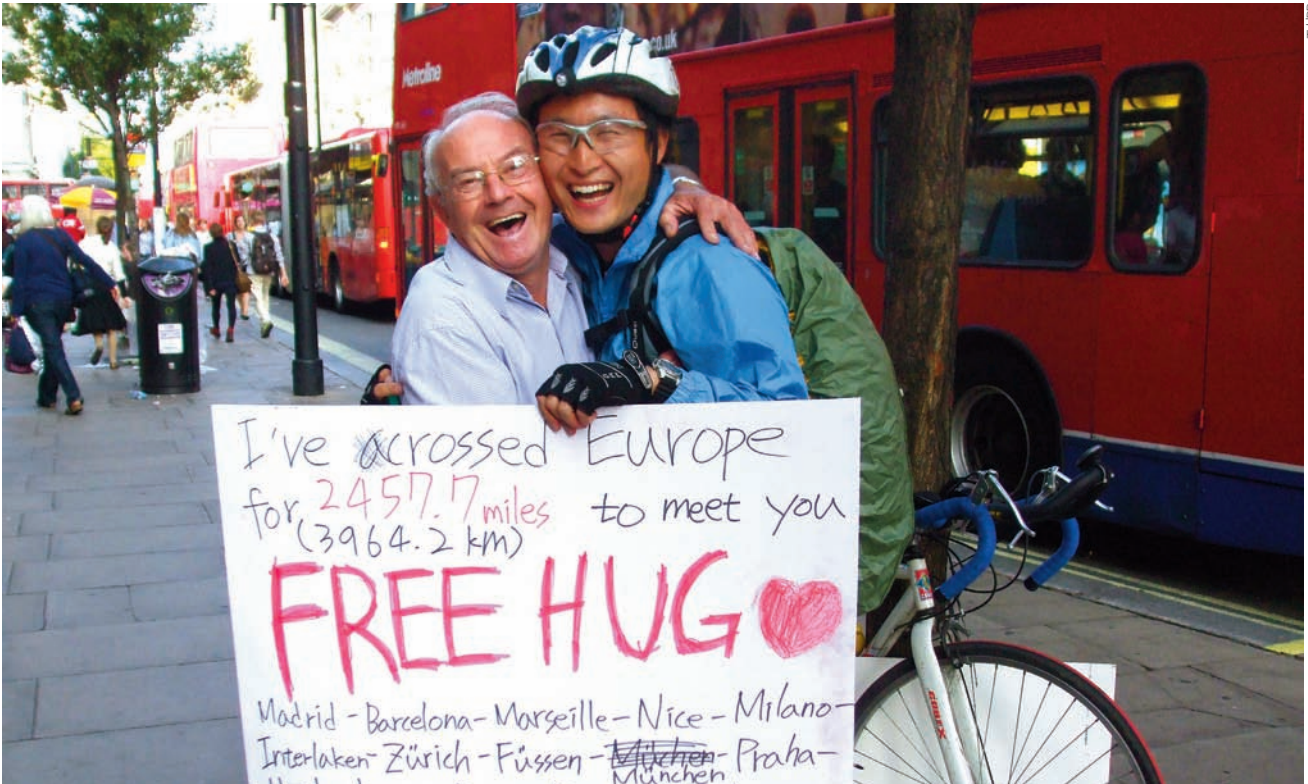 Metroline
co.uk
I've acrossed Europe
for 2457.7 miles to meet you
(3964.2 km)
FREE HUG
Madrid - Barcelona - Marseille - Nice - Milano -
Interlaken - Zürich - Füssen - München - Praha -
München